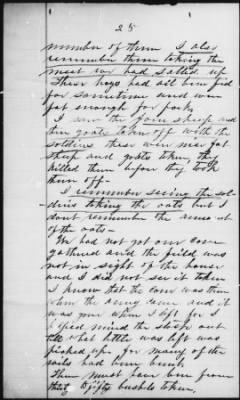 25
number of them I also
remember them taking the
meat we had salted up
These hogs had all been fed
for sometime and were
fat enough for pork.
I saw the four sheep and
two goats taken off with the
soldiers these were nice fat
sheep and goats taken, they
killed them before they took
them off-
I remember seeing the sol-
diers taking the oats but I
dont remember the amount
of the oats-
We had not got our corn
gathered and the field was
not in sight of the house
and I did not see it taken
I know that the corn was there
when the army came and it
was gone when I left for I
helped mind the stock out
what little was left was
picked up, for many of the
rails had been burned
There must have been from
to fifty bushels taken.